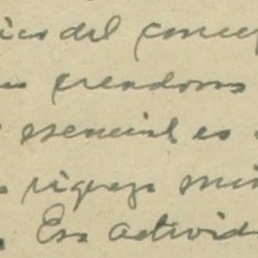 ico del concep
creadores
esencial es
riqueza mis
. Esa activid